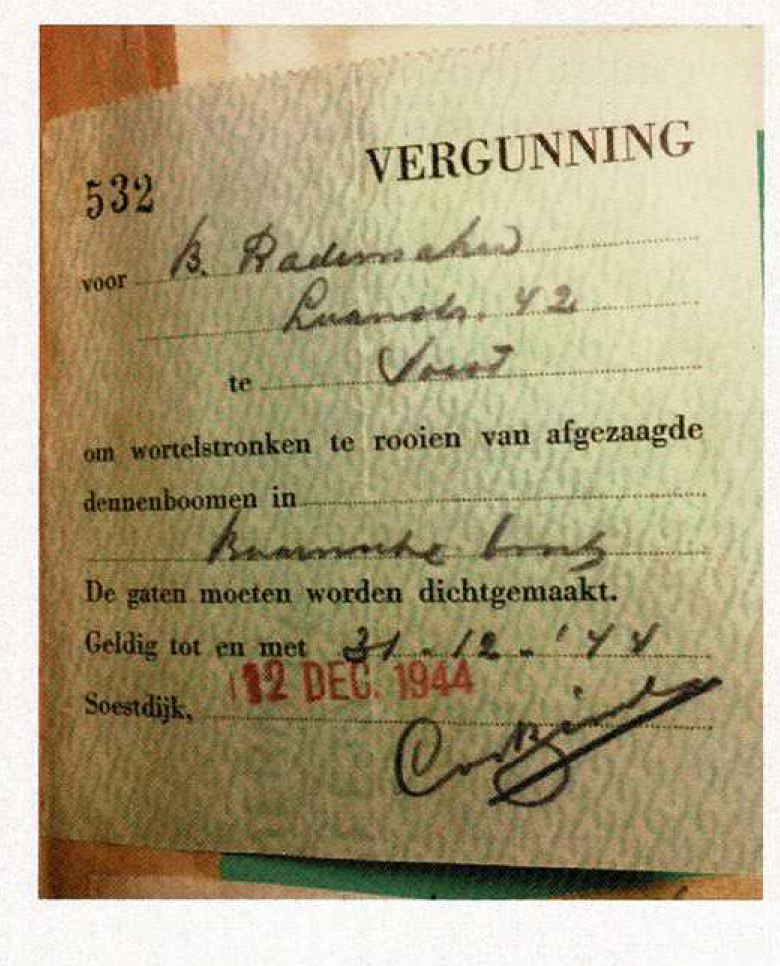 VERGUNNING
532
voor B. Rademaker
42
te Soest
om wortelstronken te rooien van afgezaagde
dennenboomen in
Baarnsche bosch
De gaten moeten worden dichtgemaakt.
Geldig tot en met 31-12-'44
12 DEC. 1944
Soestdijk,